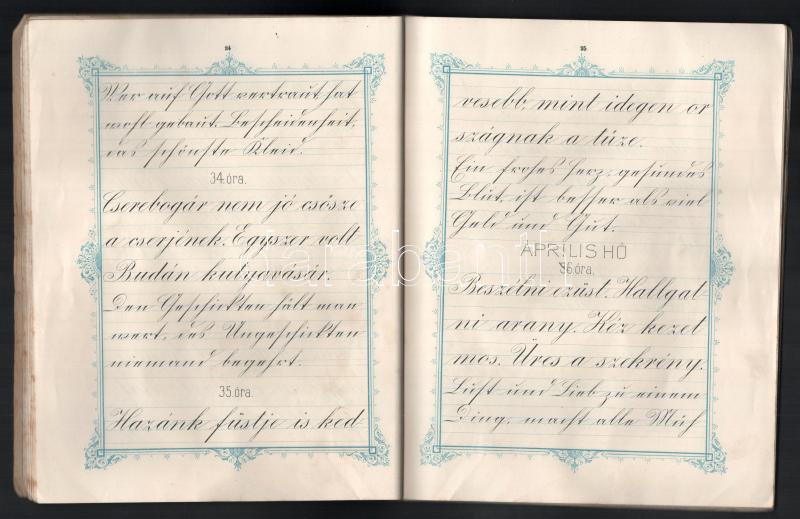 24
Wer auf Gott vertraut, hat
wohl gebaut. Bescheidenheit,
das schönste Kleid.
34. óra.
Cserebogár nem jó csősze
a cserjének. Egyszer volt
Budán kutyavásár.
Den Geschickten hält man
wert, des Ungeschickten
niemand begehrt.
35. óra.
Hazánk füstje is ked
25
vesebb, mint idegen or
szágnak a tüze.
Ein frohes Herz, gesundes
Blut, ist besser als viel
Geld und Gut.
ÁPRILIS HÓ
36. óra.
Beszélni ezüst. Hallgat-
ni arany. Kéz kezet
mos. Üres a szekrény.
Lust und Lieb zu einem
Ding, macht alle Müh
darabanth